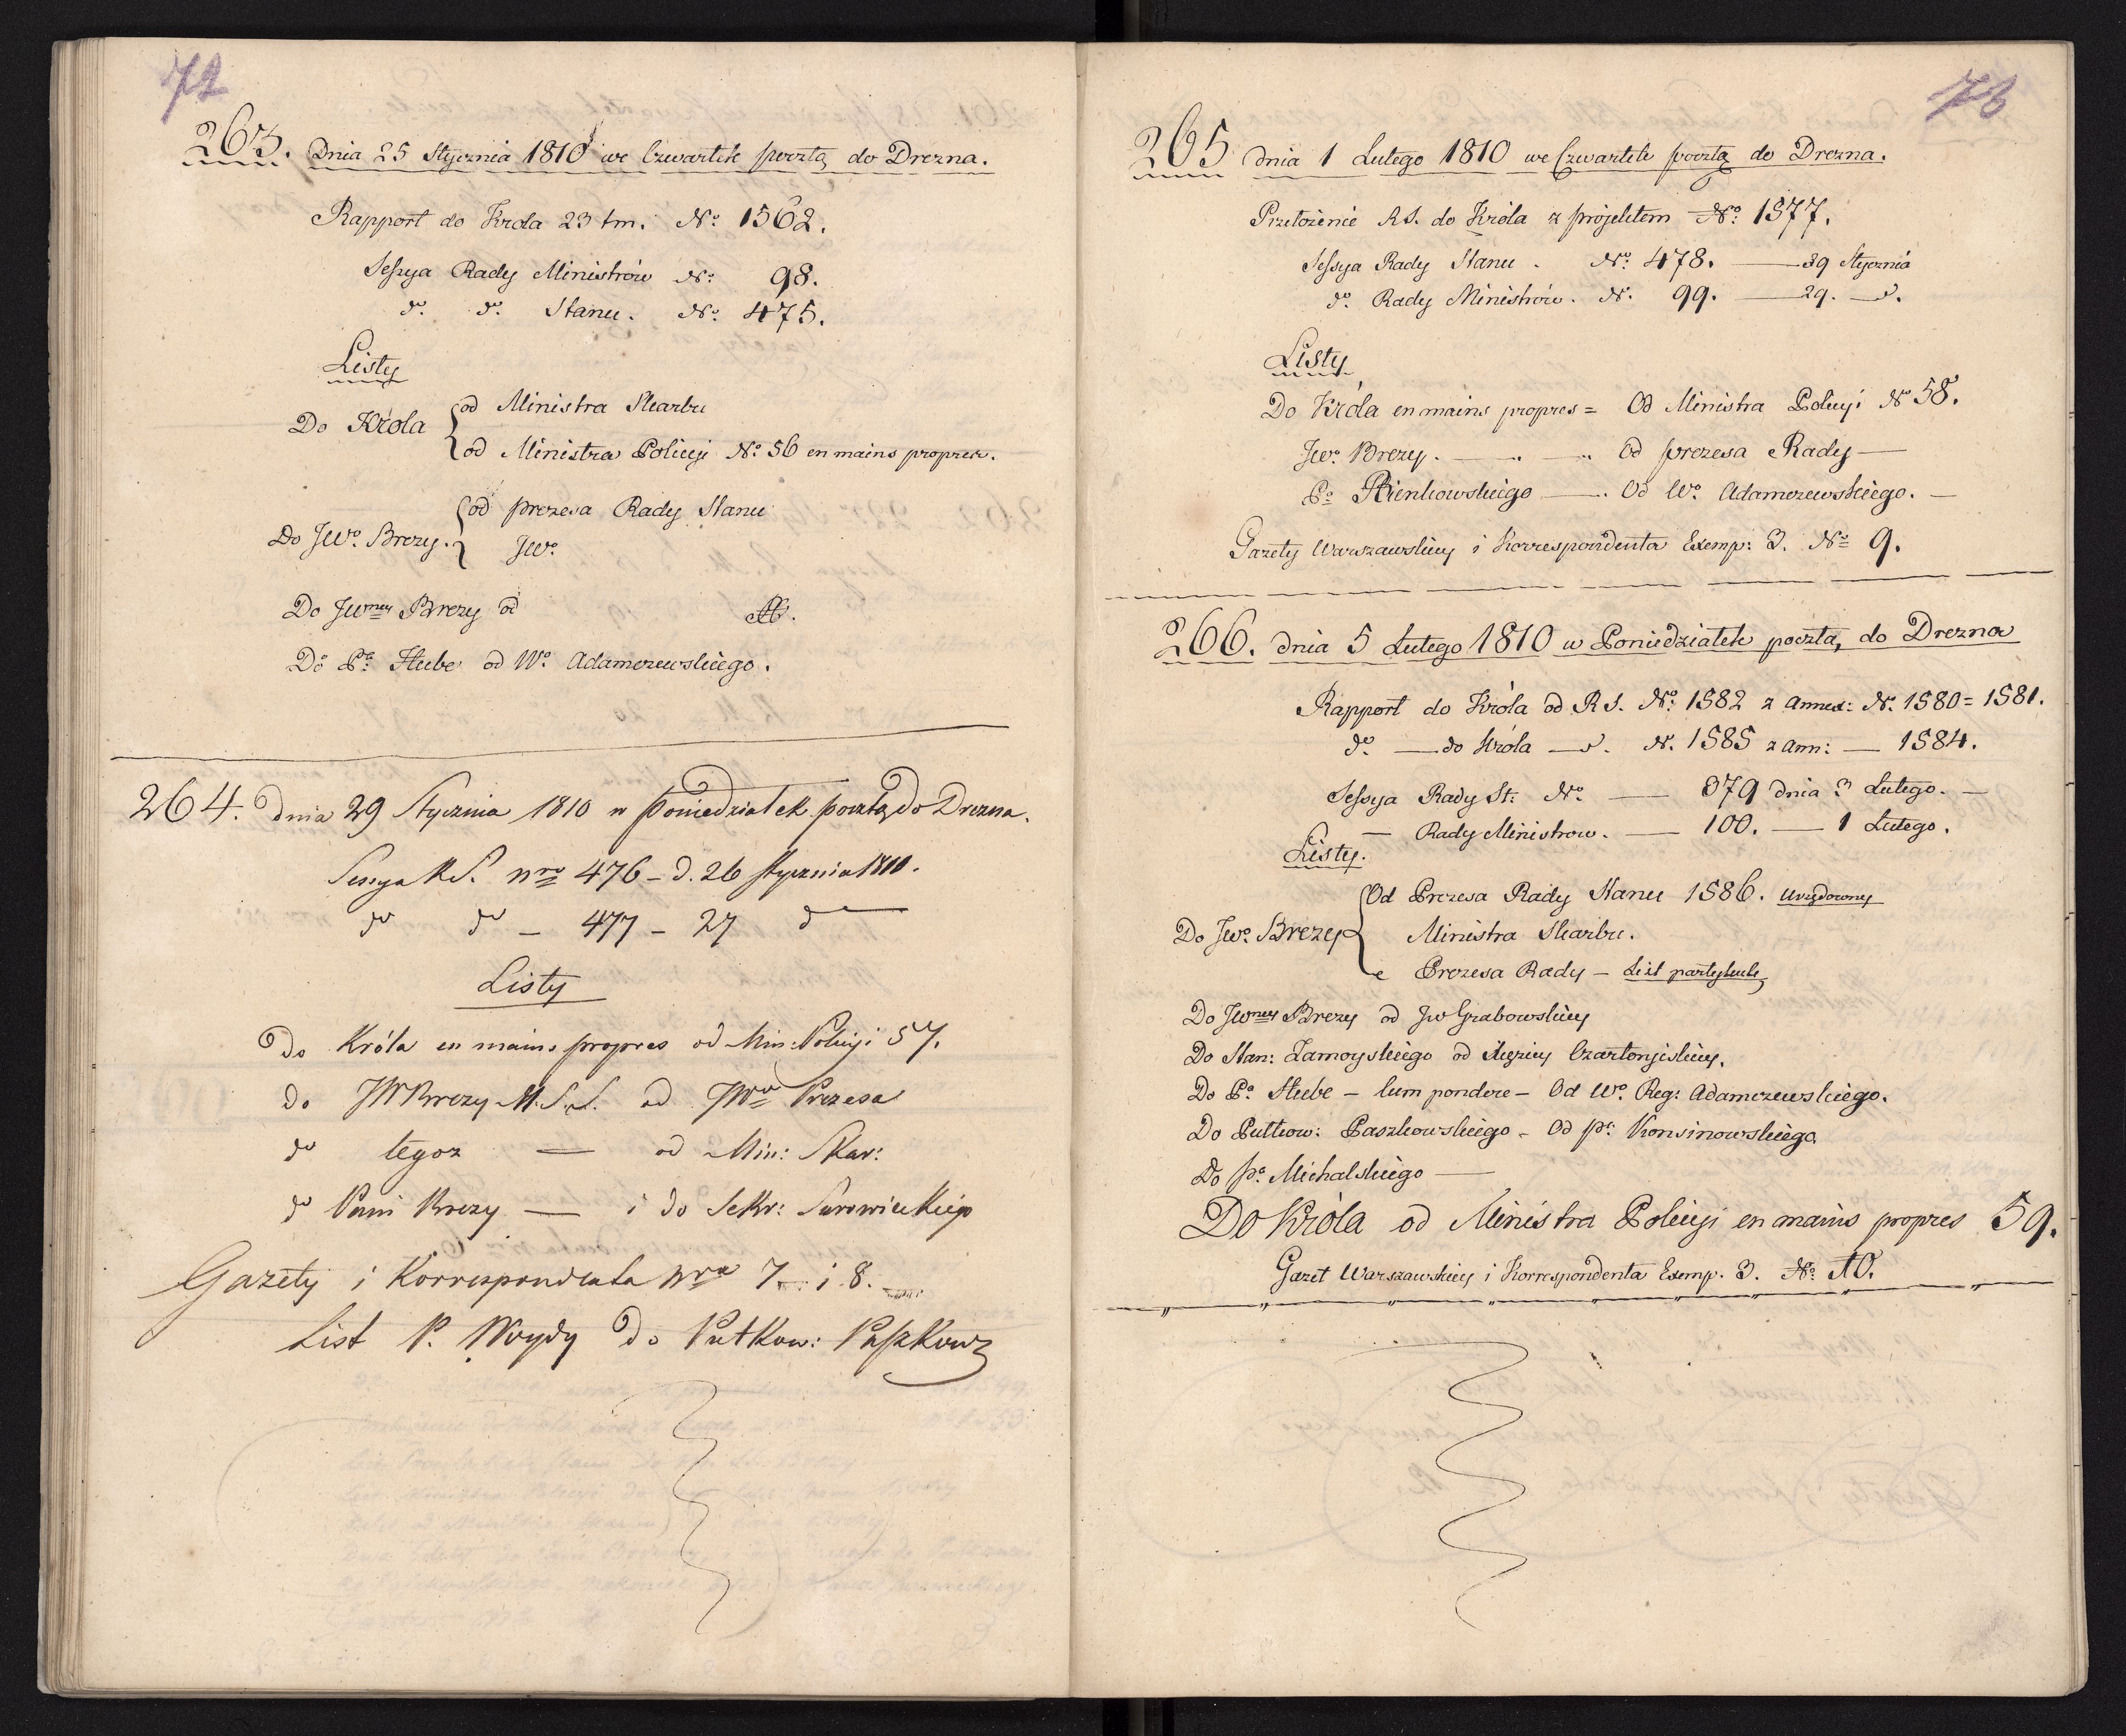 72
263. Dnia 25 Stycznia 1810 we Czwartek pocztą do Drezna.
Rapport do Krola 23 tm. No 1562.
Sessya Rady Ministrów No: 98.
do. do. Stanu. No: 475.
Listy
Do Króla
od Ministra Skarbu
od Ministra Policyi No: 56 en mains propres.
Do JWo. Brezy.
od prezesa Rady Stanu
JWo.
Do JWney Brezy od
Do Po: Hube od Wo. Adamczewskiego.
264. dnia 29 Stycznia 1810 w Poniedziałek pocztą do Drezna.
Sessya R S. nro 476 – d. 26 stycznia 1810.
do do – 477 – 27 do
Listy
do Króla en mains propres od Min: Policyi 57.
do JW Brezy M.S.S. od JWo Prezesa
do tegoz — od Min: Skar:
do Pani Brezy — i do Sekr: Surowieckiego
Gazety i Korrespondenta Nra 7. i 8.
List P. Woydy do Putkow: Paszkow
73
265 dnia 1 Lutego 1810 we Czwartek pocztą do Drezna.
Przełożenie RS. do Króla z projektem No: 1577.
Sessya Rady Stanu. No: 478. — 29 Stycznia
do. Rady Ministrów. N. 99. — 29. — d.
Listy
Do Króla en mains propres = Od Ministra Policyi No 58.
JWo. Brezy. — Od prezesa Rady —
Po Bienkowskiego — Od Wo. Adamczewskiego. —
Gazety Warszawskiey i Korrespondenta Exemp: 3. No 9.
266. dnia 5 Lutego 1810 w Poniedziałek pocztą do Drezna
Rapport do Króla od R S. No: 1582 z annex: N. 1580 = 1581.
do. — do Króla — d. N. 1585 z ann: — 1584.
Sessya Rady St: No. — 379 dnia 3 Lutego. —
— Rady Ministrow. — 100. — 1 Lutego.
Listy.
Do JWo. Brezy
Od Prezesa Rady Stanu 1586. urzędowny
Ministra Skarbu.
Prezesa Rady – List partykul
Do JWney Brezy od JW Grabowskiey
Do Stan: Zamoyskiego od Xiężney Czartoryiskiey.
Do Po: Hube – cum pondere – Od Wo. Reg: Adamczewskiego.
Do Putkow: Paszkowskiego – Od po: Konsinowskiego
Do po: Michalskiego —
Do Króla od Ministra Policyi en mains propres 59.
Gazet Warszawskiey i Korrespondenta Exemp. 3. No: 10.